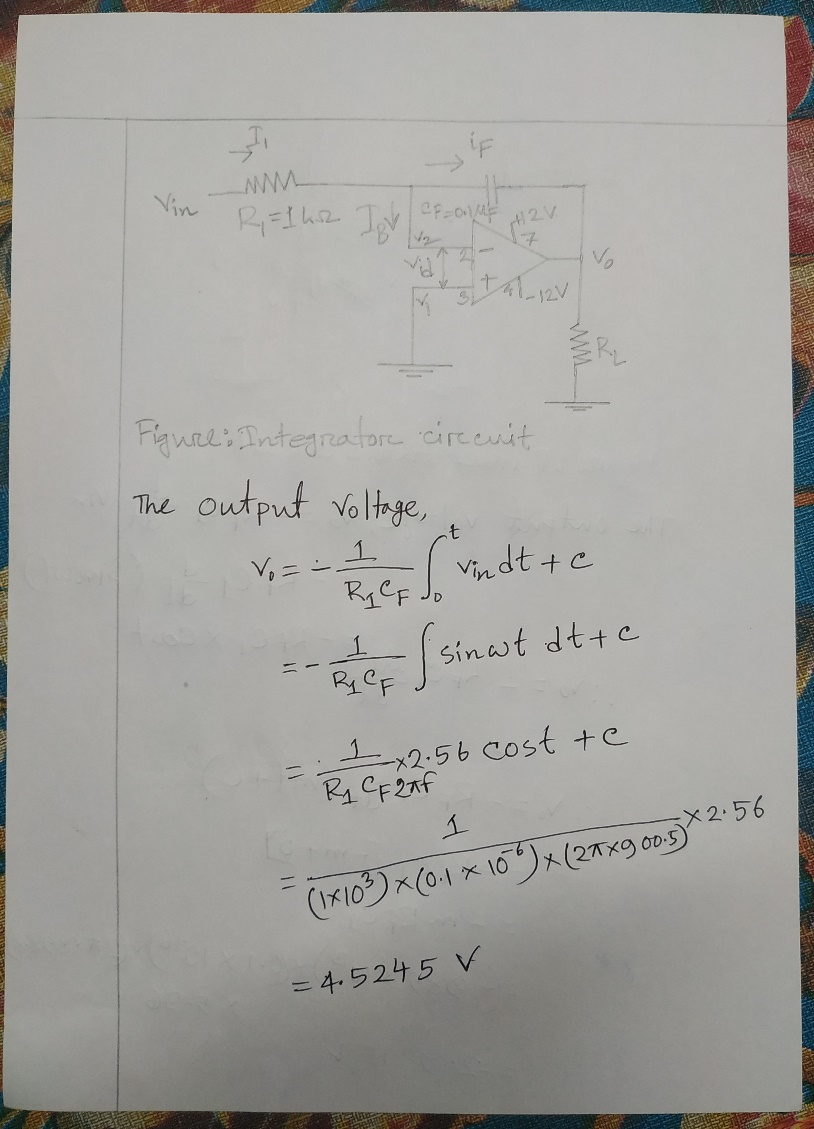 I₁
→
iF
→
Vin
R₁=1kΩ
IB↓
CF=0.1µF
+12V
7
V₂
2
−
Vid
V₀
+
V₁
3
4
-12V
RL
Figure: Integrator circuit
The output voltage,
V₀ = - 1/(R₁CF) ∫₀ᵗ Vin dt + c
= - 1/(R₁CF) ∫ sinωt dt + c
= 1/(R₁CF2πf) ×2.56 cost + c
= 1/((1×10³)×(0.1×10⁻⁶)×(2π×900.5)) ×2.56
= 4.5245 V